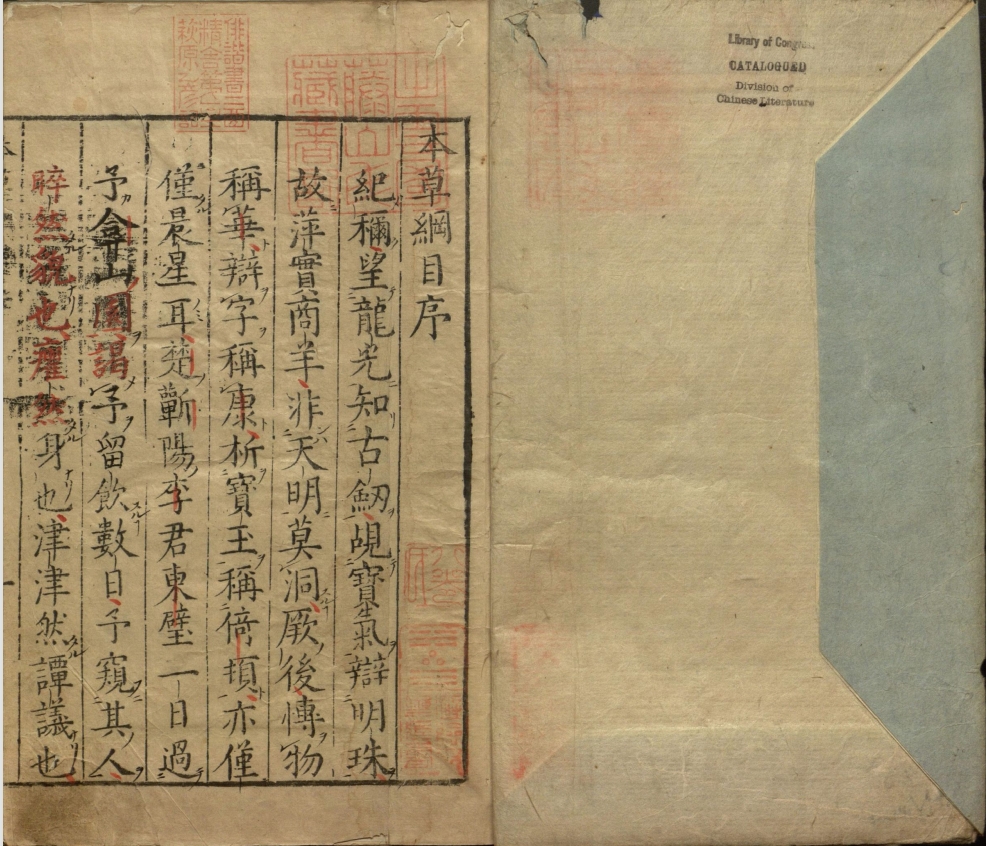 Library of Congress
CATALOGUED
Division of
Chinese Literature
本草綱目序
紀稱望龍光知古劒覘寶氣辯明珠
故萍實商羊非天明莫洞厥後博物
稱華辯字稱康析寶玉稱倚頓亦僅
僅晨星耳楚蘄陽李君東璧一日過
予弇山園謁予留飲數日予窺其人
睟然貌也癯然身也津津然譚議也